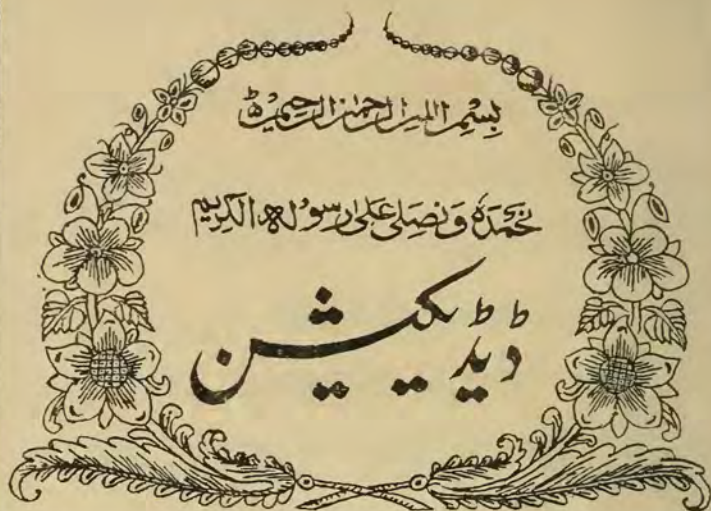 بِسْمِ اللهِ الرحمٰنِ الرحیمِ ط
نحمدہٗ وَنصلی علیٰ رسولہ الکریم
ڈیڈیکیشن